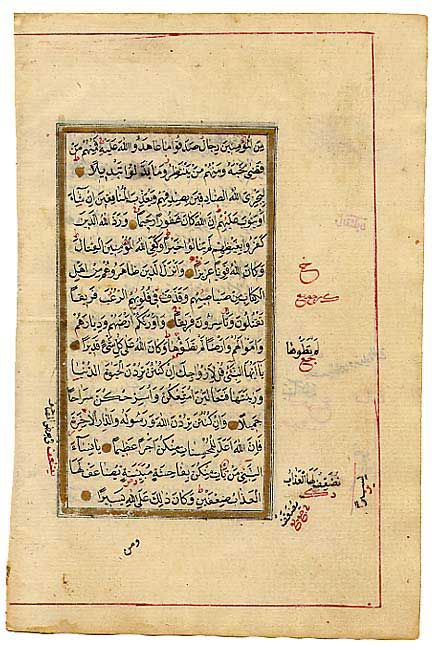 من المؤمنين رجال صدقوا ما عاهدوا الله عليه فمنهم من
قضى نحبه ومنهم من ينتظر وما بدلوا تبديلا
ليجزي الله الصادقين بصدقهم ويعذب المنافقين ان شاء
او يتوب عليهم ان الله كان غفورا رحيما ورد الله الذين
كفروا بغيظهم لم ينالوا خيرا وكفى الله المؤمنين القتال
وكان الله قويا عزيزا وانزل الذين ظاهروهم من اهل
الكتاب من صياصيهم وقذف في قلوبهم الرعب فريقا
تقتلون وتأسرون فريقا واورثكم ارضهم وديارهم
واموالهم وارضا لم تطؤها وكان الله على كل شيء قديرا
يا ايها النبي قل لازواجك ان كنتن تردن الحيوة الدنيا
وزينتها فتعالين امتعكن واسرحكن سراحا
جميلا وان كنتن تردن الله ورسوله والدار الاخرة
فان الله اعد للمحسنات منكن اجرا عظيما يا نساء
النبي من يأت منكن بفاحشة مبينة يضاعف لها
العذاب ضعفين وكان ذلك على الله يسيرا
ومن
نضعف لها العذاب